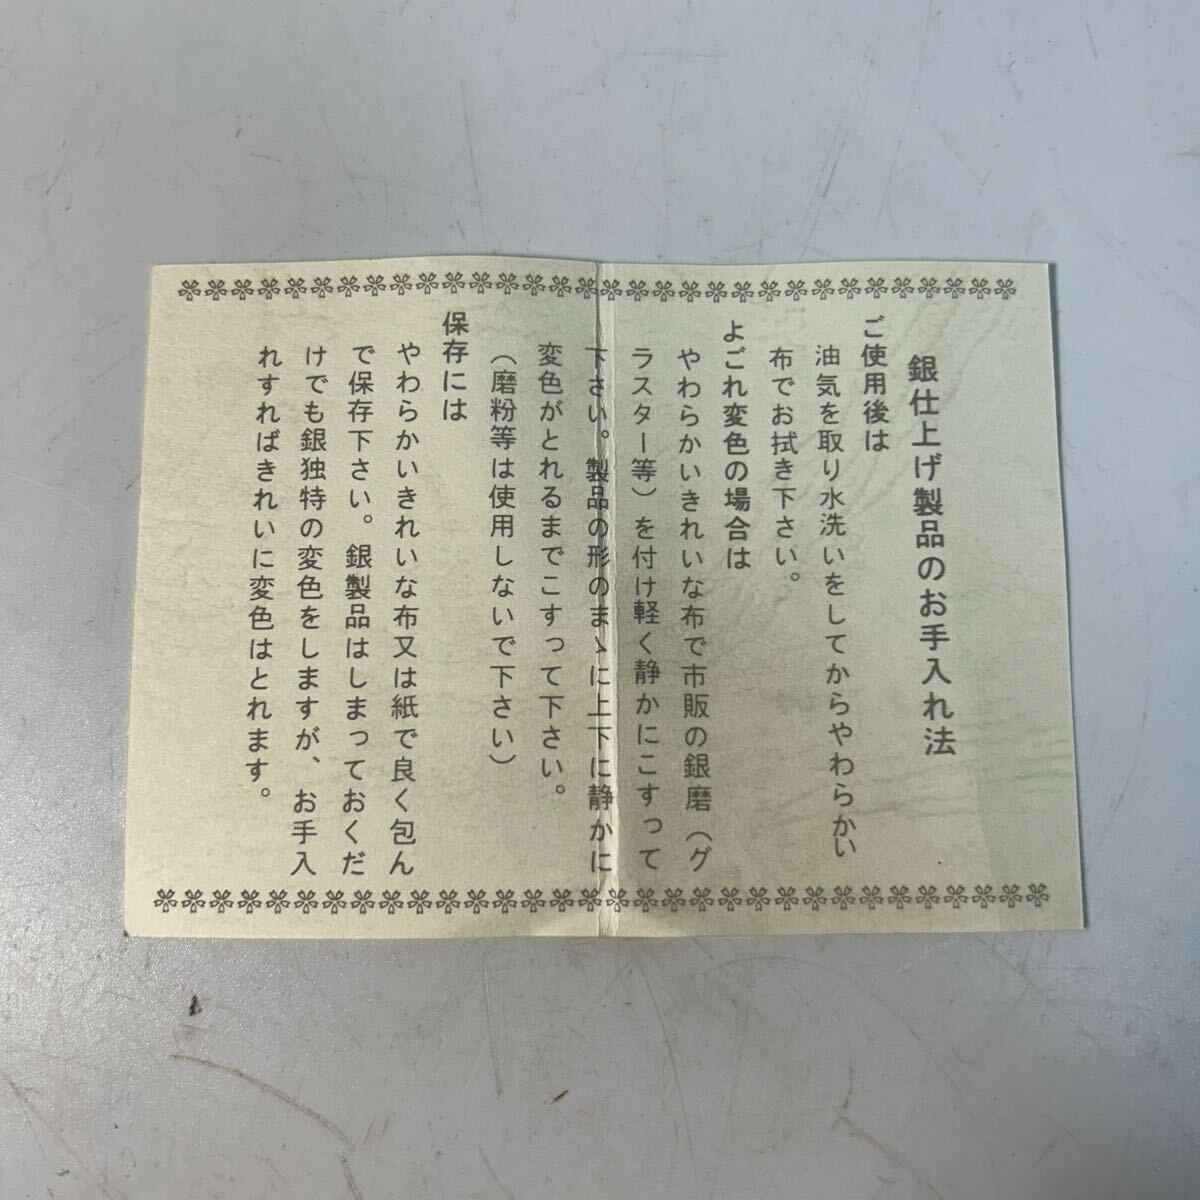 銀仕上げ製品のお手入れ法
ご使用後は
油気を取り水洗いをしてからやわらかい
布でお拭き下さい。
よごれ変色の場合は
やわらかいきれいな布で市販の銀磨（グ
ラスター等）を付け軽く静かにこすって
下さい。製品の形のまゝに上下に静かに
変色がとれるまでこすって下さい。
（磨粉等は使用しないで下さい）
保存には
やわらかいきれいな布又は紙で良く包ん
で保存下さい。銀製品はしまっておくだ
けでも銀独特の変色をしますが、お手入
れすればきれいに変色はとれます。